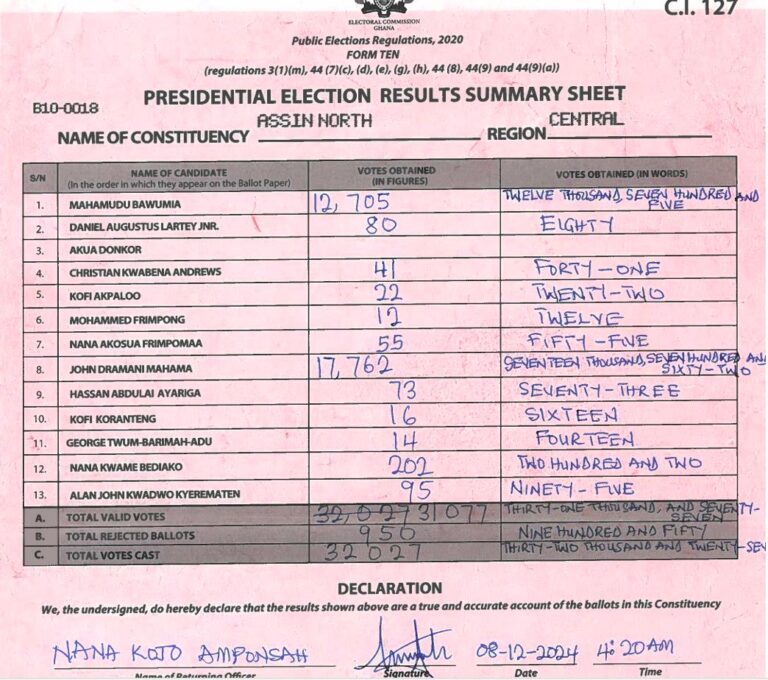 C.I. 127
ELECTORAL COMMISSION
GHANA
Public Elections Regulations, 2020
FORM TEN
(regulations 3(1)(m), 44 (7)(c), (d), (e), (g), (h), 44 (8), 44(9) and 44(9)(a))
B10-0018
PRESIDENTIAL ELECTION RESULTS SUMMARY SHEET
NAME OF CONSTITUENCY ASSIN NORTH REGION CENTRAL
S/N NAME OF CANDIDATE (In the order in which they appear on the Ballot Paper) VOTES OBTAINED (IN FIGURES) VOTES OBTAINED (IN WORDS)
1. MAHAMUDU BAWUMIA 12,705 TWELVE THOUSAND, SEVEN HUNDRED AND FIVE
2. DANIEL AUGUSTUS LARTEY JNR. 80 EIGHTY
3. AKUA DONKOR
4. CHRISTIAN KWABENA ANDREWS 41 FORTY-ONE
5. KOFI AKPALOO 22 TWENTY-TWO
6. MOHAMMED FRIMPONG 12 TWELVE
7. NANA AKOSUA FRIMPOMAA 55 FIFTY-FIVE
8. JOHN DRAMANI MAHAMA 17,762 SEVENTEEN THOUSAND, SEVEN HUNDRED AND SIXTY-TWO
9. HASSAN ABDULAI AYARIGA 73 SEVENTY-THREE
10. KOFI KORANTENG 16 SIXTEEN
11. GEORGE TWUM-BARIMAH-ADU 14 FOURTEEN
12. NANA KWAME BEDIAKO 202 TWO HUNDRED AND TWO
13. ALAN JOHN KWADWO KYEREMATEN 95 NINETY-FIVE
A. TOTAL VALID VOTES 32,027 31,077 THIRTY-ONE THOUSAND, AND SEVENTY-SEVEN
B. TOTAL REJECTED BALLOTS 950 NINE HUNDRED AND FIFTY
C. TOTAL VOTES CAST 32027 THIRTY-TWO THOUSAND AND TWENTY-SEV
DECLARATION
We, the undersigned, do hereby declare that the results shown above are a true and accurate account of the ballots in this Constituency
NANA KOJO AMPONSAH 08-12-2024 4:20AM
Name of Returning Officer Signature Date Time